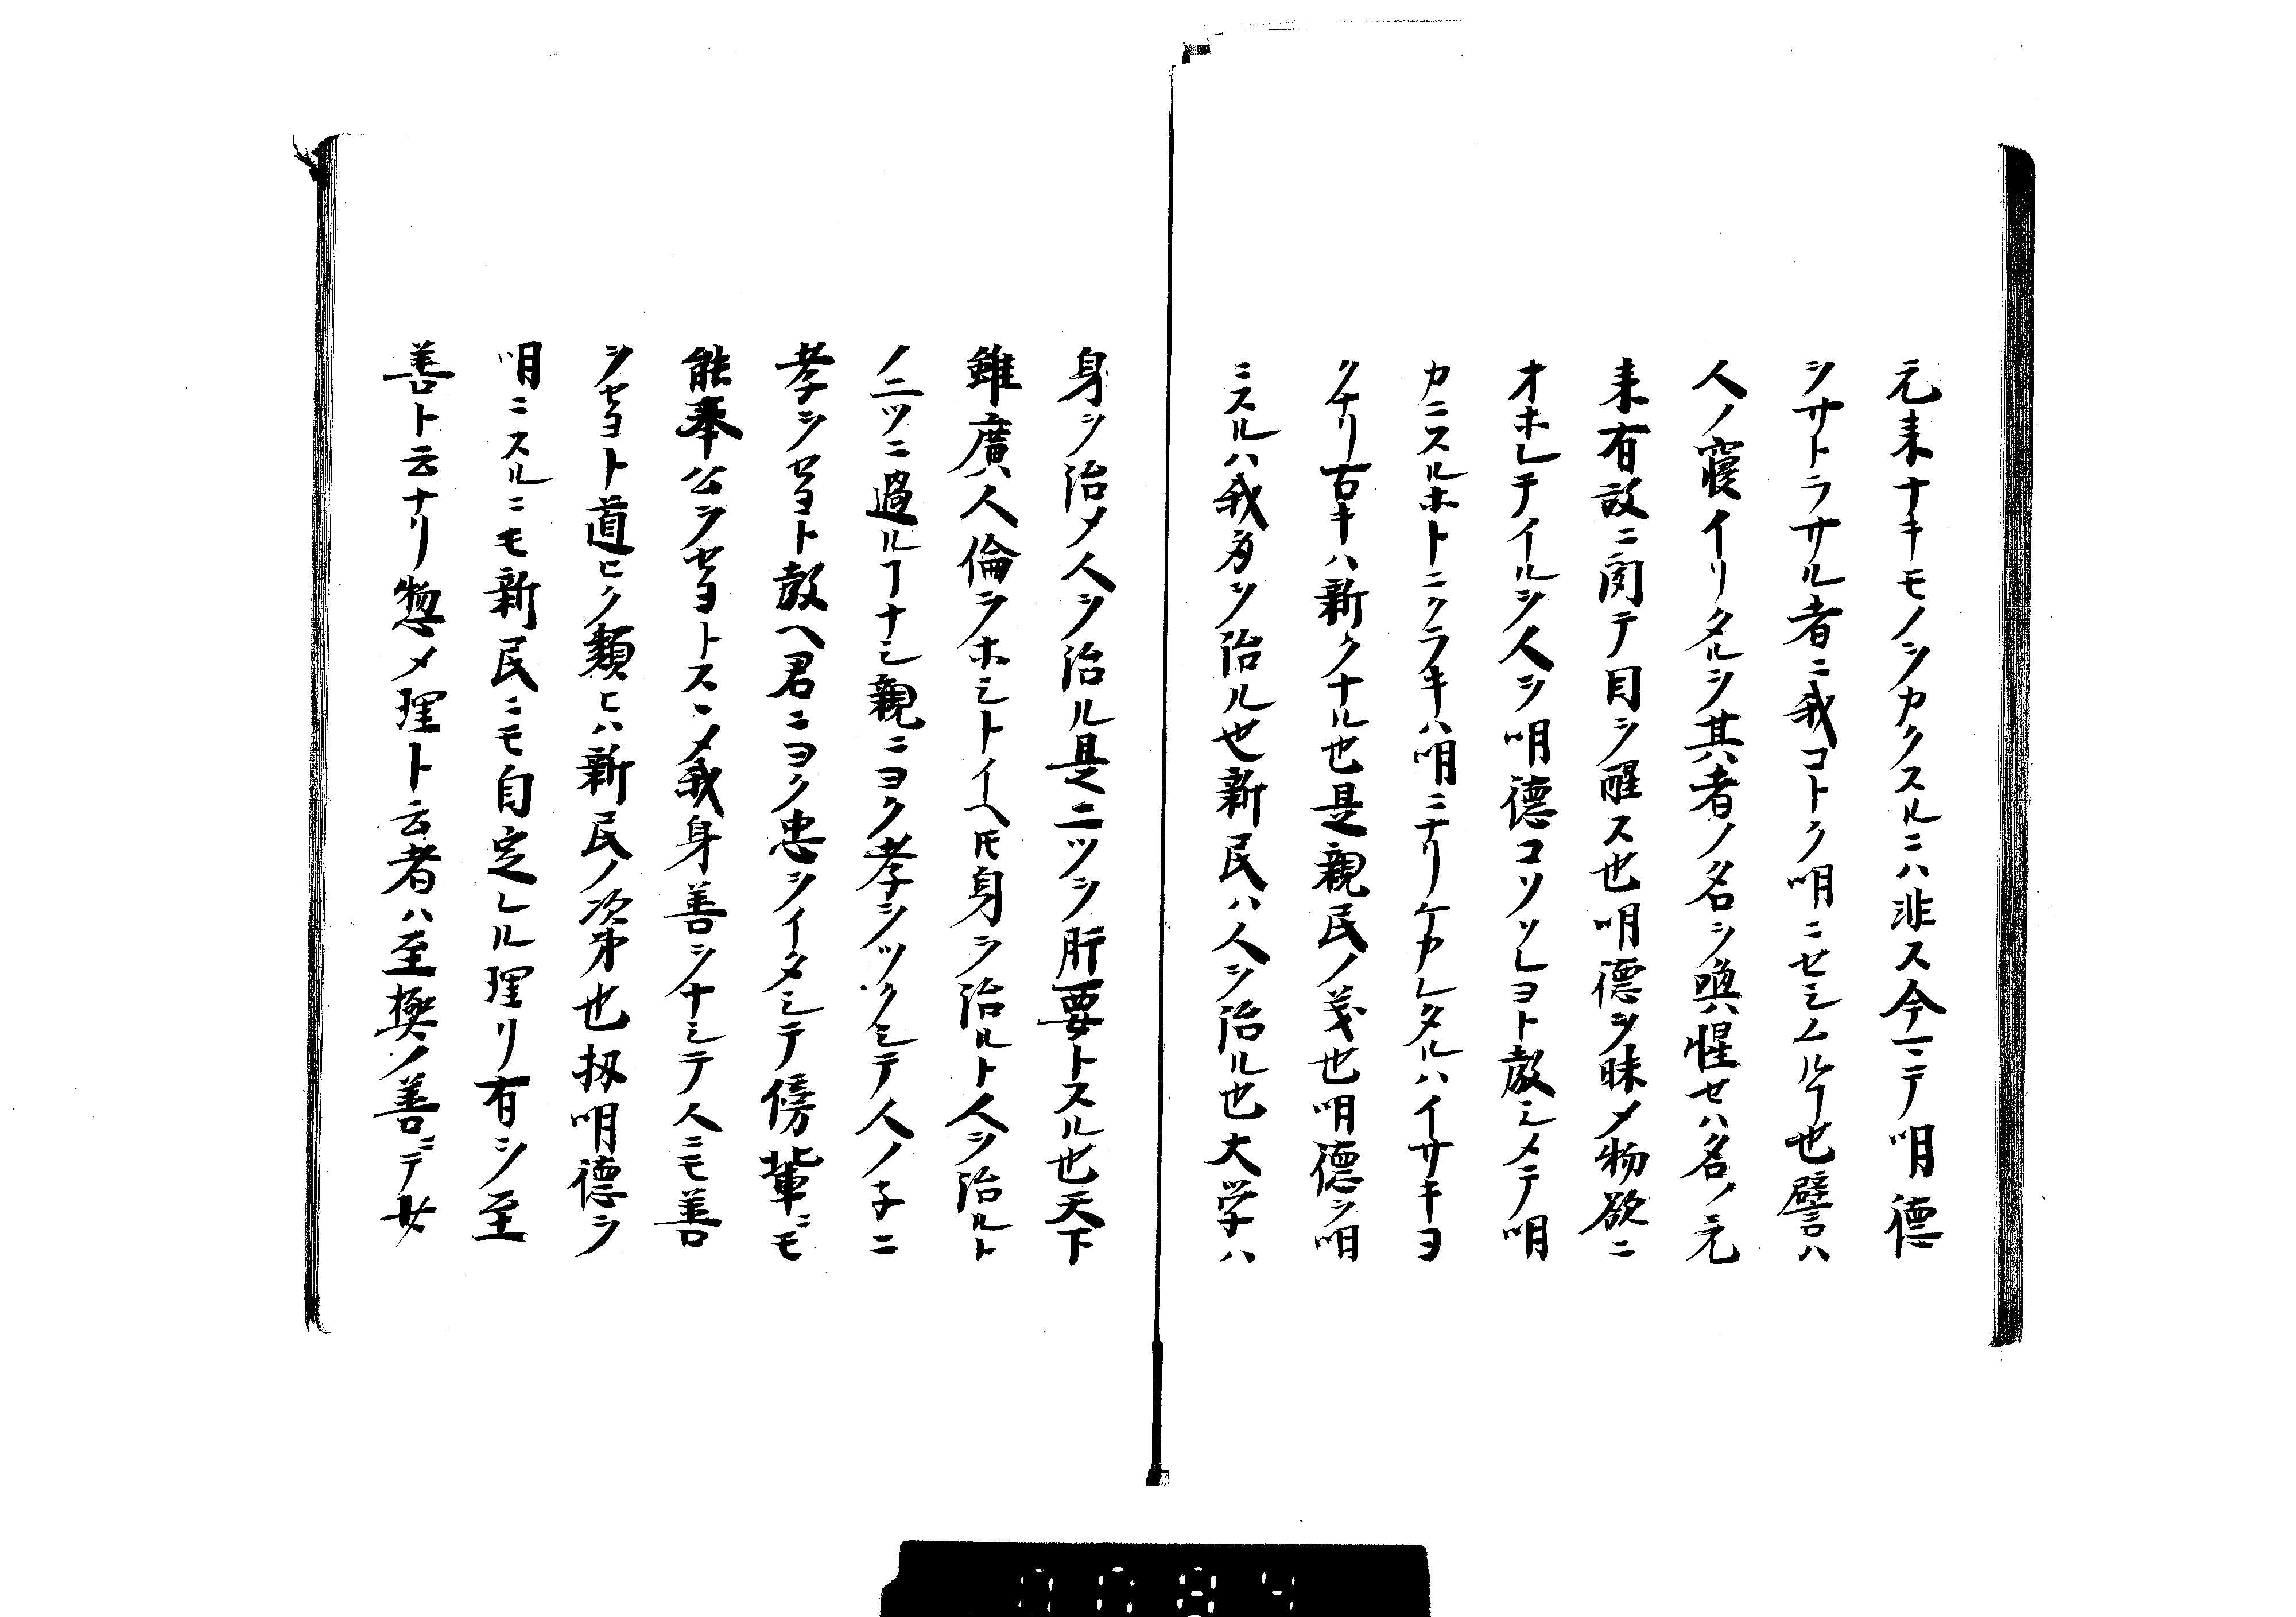 元来ナキモノヲカクスルニハ非ス今一ニテ明德
ヲサトラサル者ニ我コトク明ニセシムルヿ也譬ハ
人ノ寢イリタルヲ其者ノ名ヲ喚惺セハ名ノ元
来有故ニ聞テ目ヲ醒ス也明德ヲ昧メ物欲ニ
オホレテイルヲ人ヲ明德コソソレヨト教シメテ明
カニスルホトニクラキハ明ニナリケカレタルハイサキヨ
クナリ古キハ新クナル也是親民ノ義也明德ヲ明
ニスルハ我身ヲ治ル也新民ハ人ヲ治ル也大学ハ
身ヲ治メ人ヲ治ル是二ツヲ肝要トスル也天下
雖廣人倫ヲホシトイヘ𪜈身ヲ治ルト人ヲ治ルト
ノ二ツニ過ルヿナシ親ニヨク孝ヲツクシテ人ノ子ニ
孝ヲセヨト教ヘ君ニヨク忠ヲイタシテ傍輩ニモ
能奉公ヲセヨトスヽメ我身善ヲナシテ人ニモ善
ヲセヨト道ヒク類ヒハ新民ノ次第也扨明德ヲ
明ニスルニモ新民ニモ自定レル理リ有ヲ至
善ト云ナリ惣メ理ト云者ハ至極ノ善ニテ女